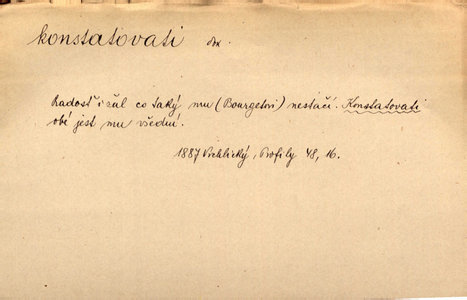 konstatovati dok.
Radost i žal co taký mu (Bourgetovi) nestačí. Konstatovati
obé jest mu všední.
1887 Vrchlický, Profily 48, 16.